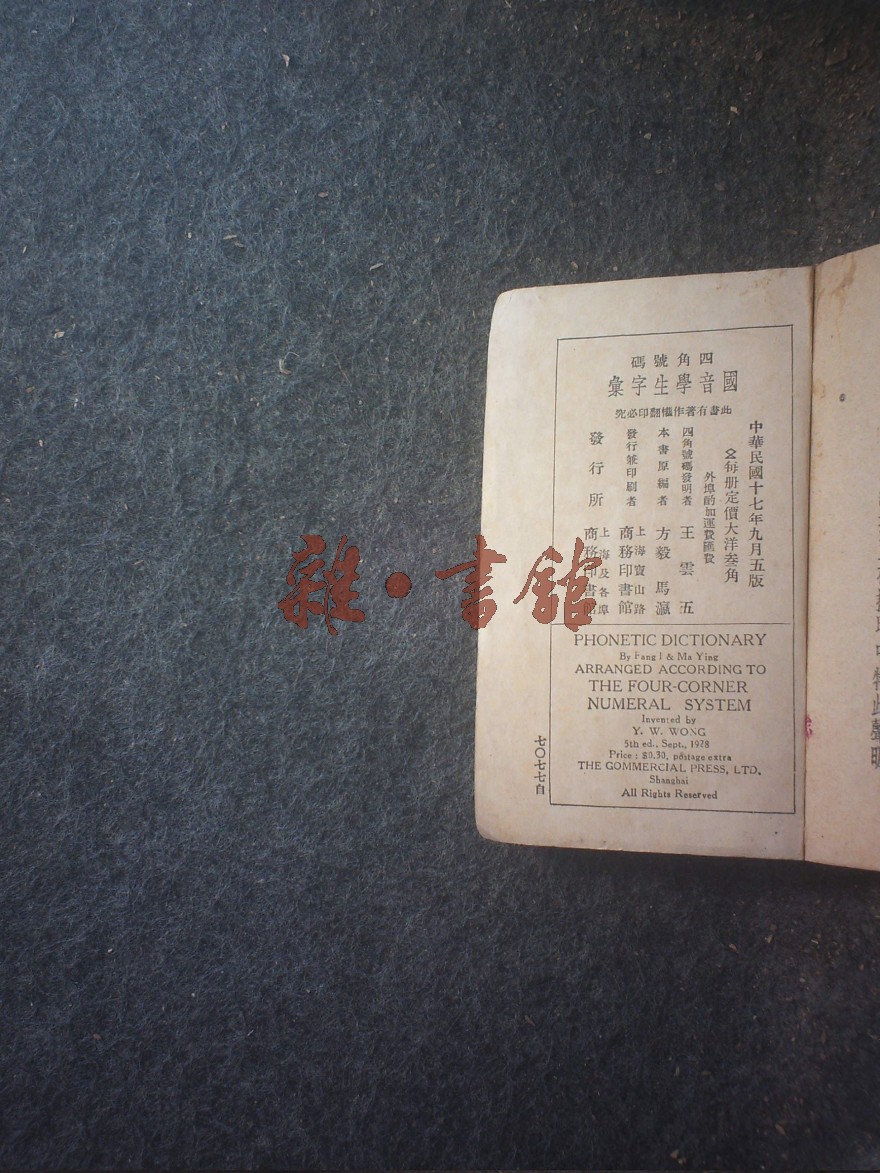 四角號碼
國音學生字彙
此書有著作權翻印必究
中華民國十七年九月五版
每册定價大洋叁角
外埠酌加運費匯費
四角號碼發明者 王雲五
本書原編者 方毅 馬瀛
發行兼印刷者 上海寶山路 商務印書館
發行所 上海及各埠 商務印書館
PHONETIC DICTIONARY
By Fang I & Ma Ying
ARRANGED ACCORDING TO
THE FOUR-CORNER
NUMERAL SYSTEM
Invented by
Y. W. WONG
5th ed., Sept., 1928
Price: $0.30, postage extra
THE COMMERCIAL PRESS, LTD.
Shanghai
All Rights Reserved
七〇七七自
雜·書館
此聲明